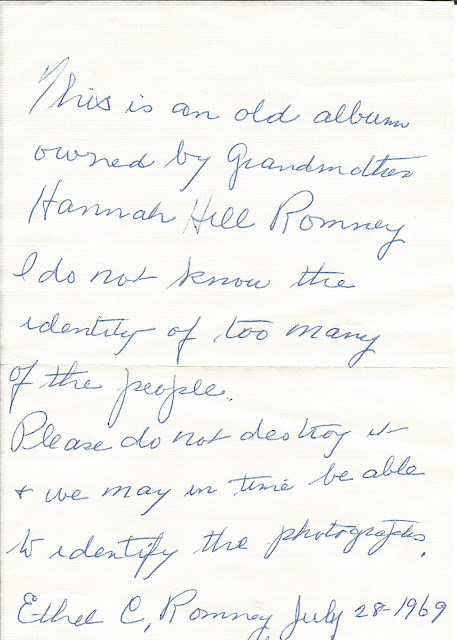 This is an old album
owned by Grandmother
Hannah Hill Romney
I do not know the
identity of too many
of the people.
Please do not destroy it
& we may in time be able
to identify the photographs.
Ethel C. Romney July 28-1969